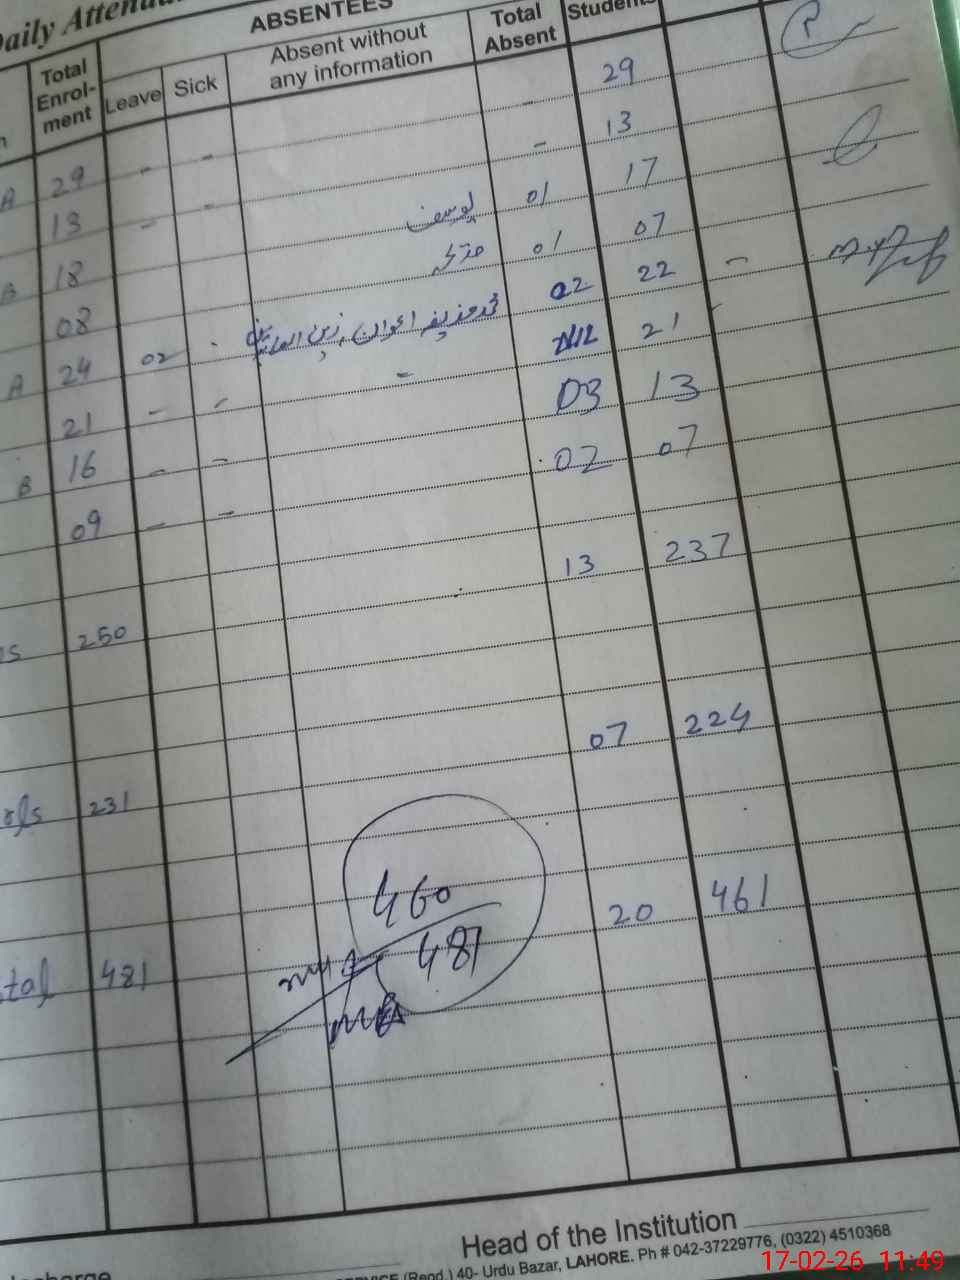 Daily Atten
ABSENTEES
Total Enrol- ment
Leave
Sick
Absent without any information
Total Absent
Students
A 29 - - - 29
13 - - - 13
B 18 یوسف 01 17
08 01 07
A 24 02 زین العابدین 02 22 -
21 - - - 21
B 16 - - 03 13
09 - - 02 07
250 13 237
231 07 224
460
481
tal 481 20 461
Head of the Institution
(Regd.) 40- Urdu Bazar, LAHORE. Ph # 042-37229776, (0322) 4510368
17-02-26 11:49